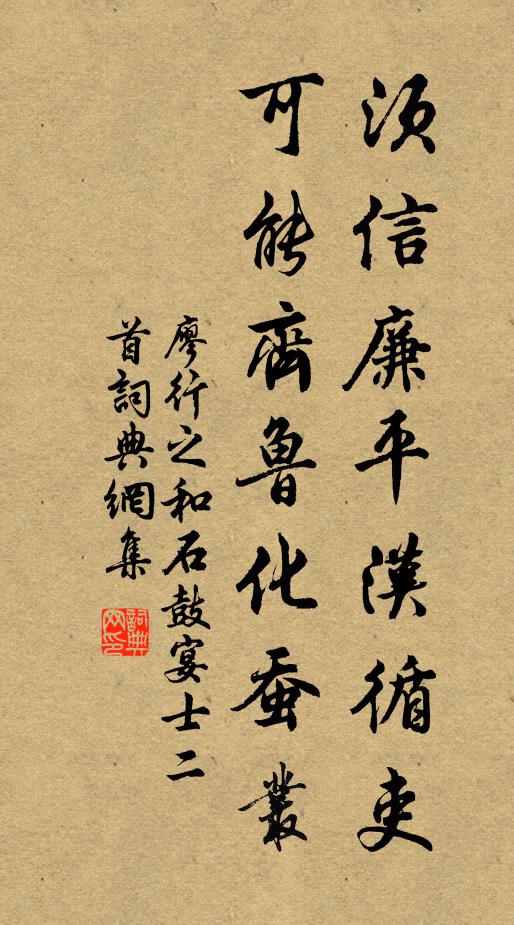 須信廉平漢循吏
可能齊魯化蚕叢
廖行之和石鼓宴士二
首詞典網集
詞典
网印